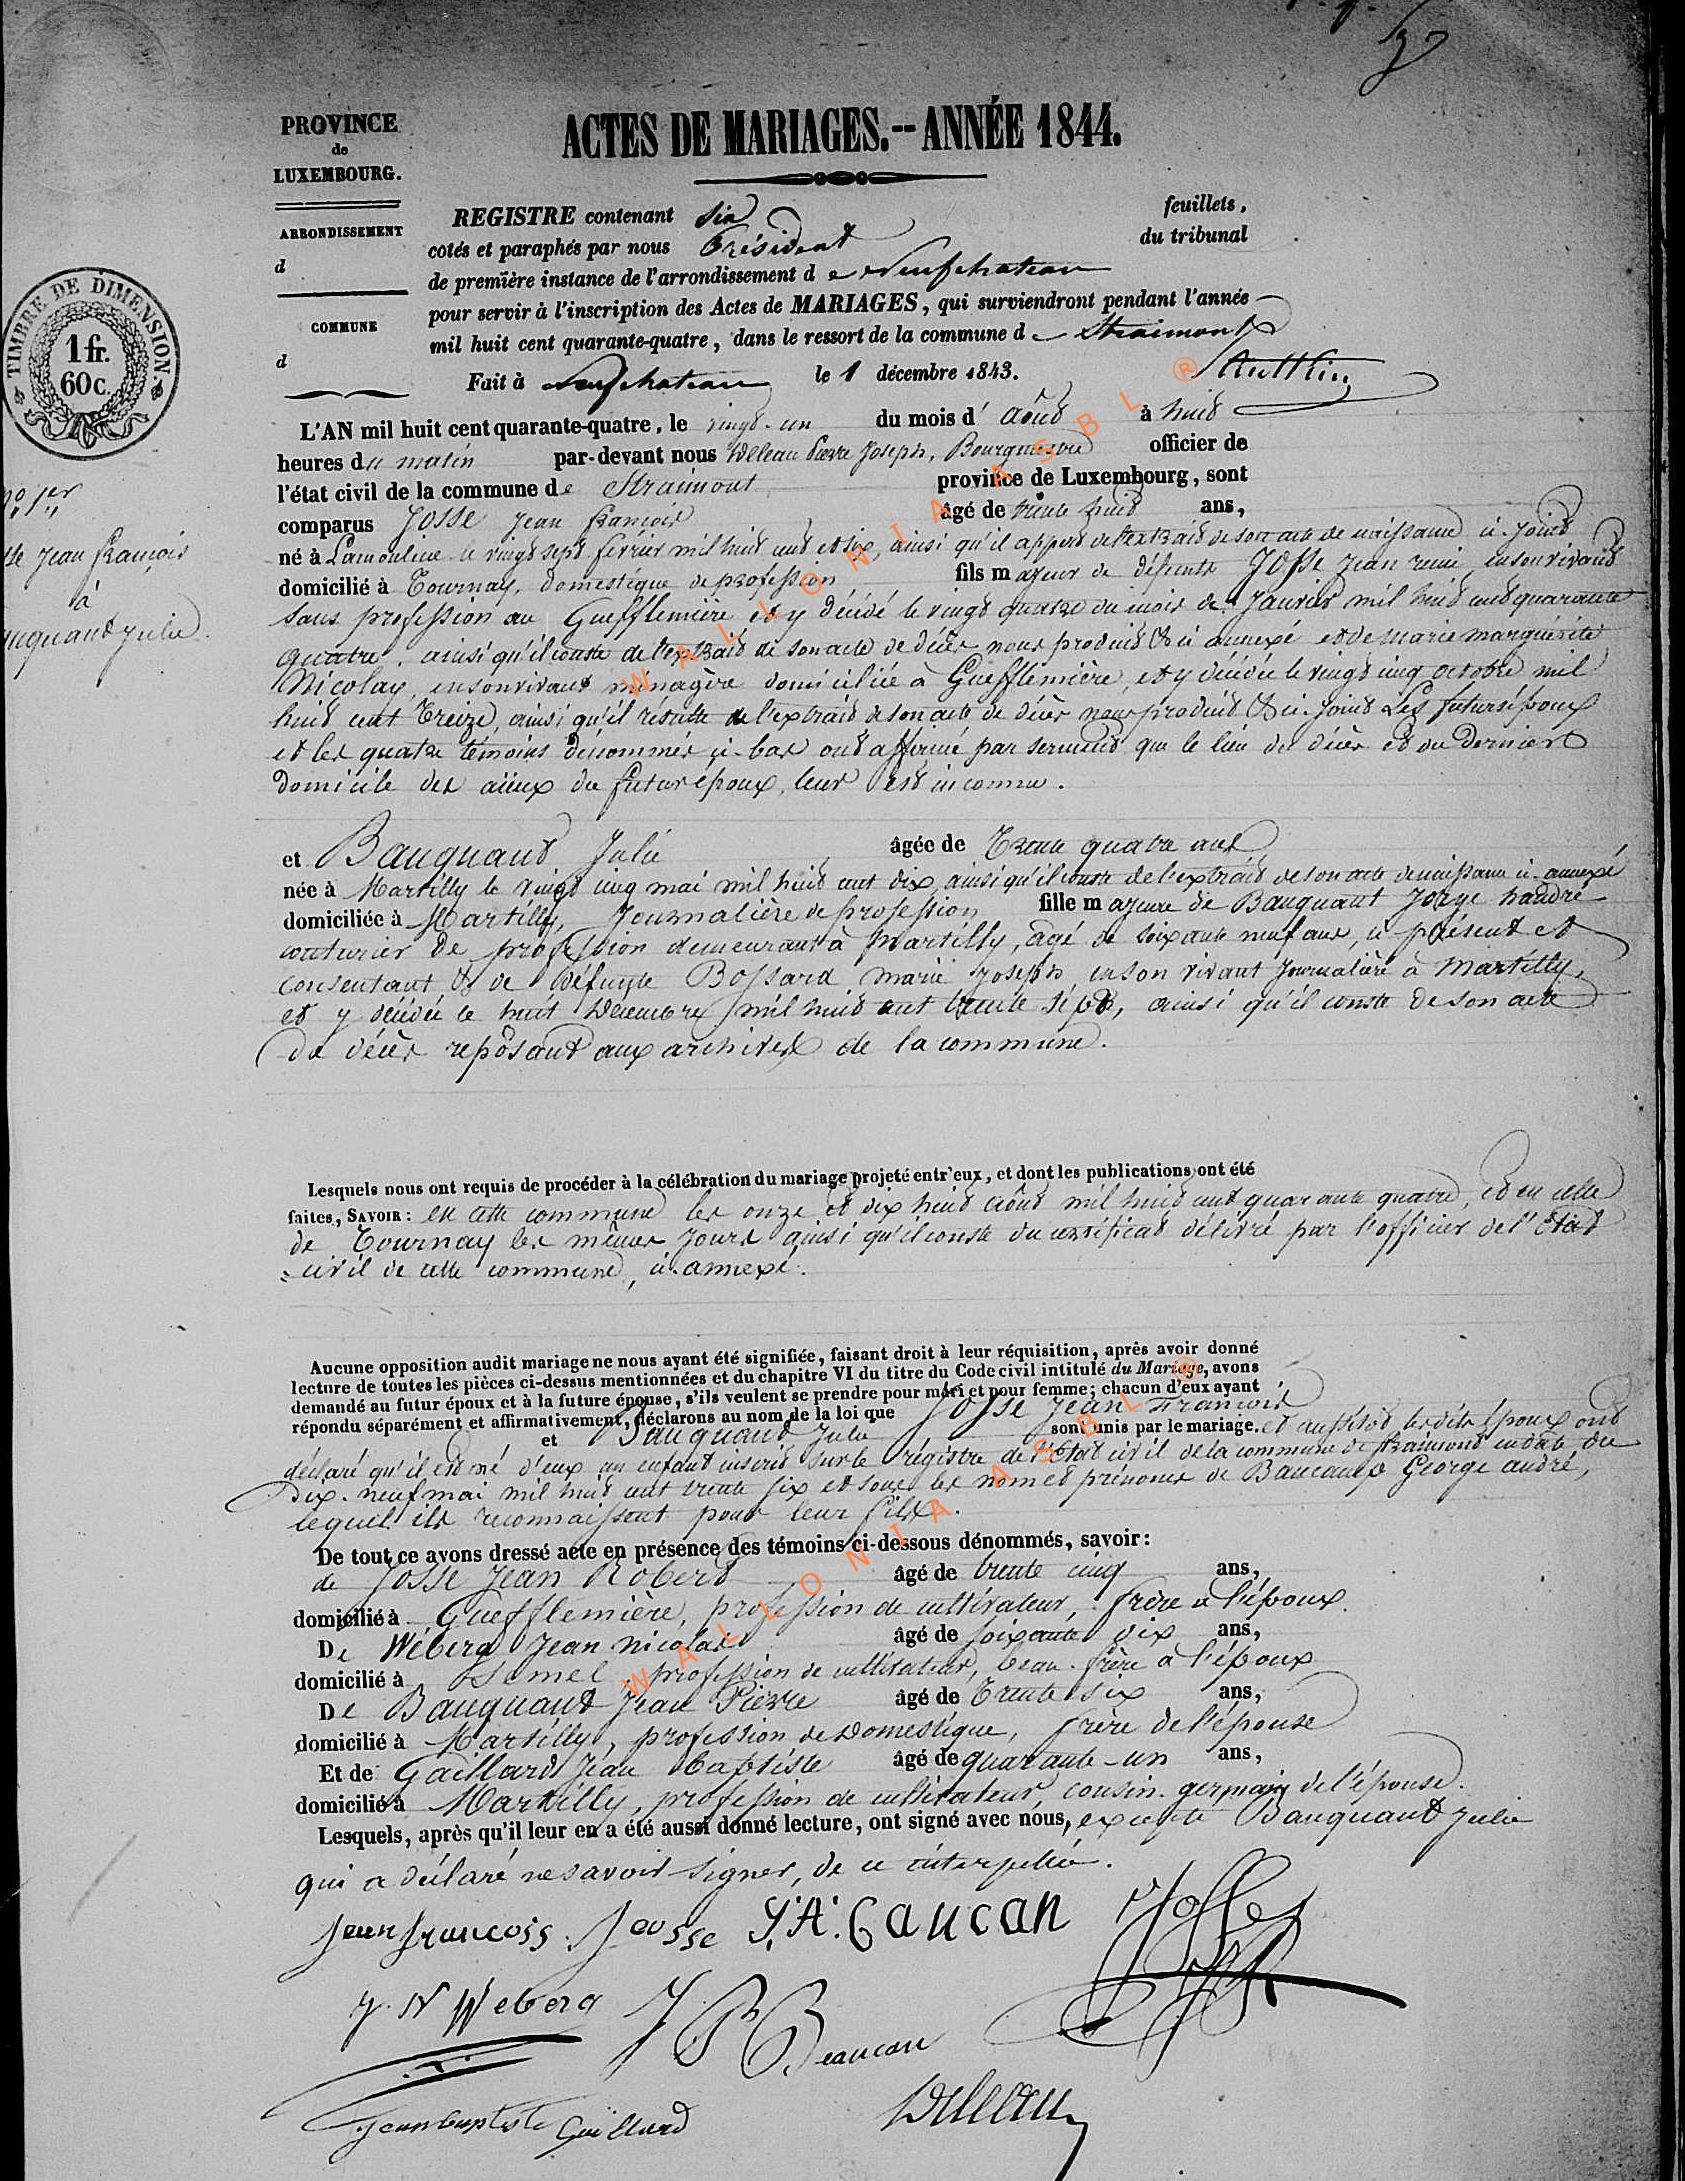 PROVINCE
de
LUXEMBOURG.
ARRONDISSEMENT
d
COMMUNE
d
TIMBRE DE DIMENSION.
1 fr.
60c.
ACTES DE MARIAGES.-- ANNÉE 1844.
REGISTRE contenant six feuillets,
cotés et paraphés par nous Président du tribunal
de première instance de l'arrondissement de Neufchateau
pour servir à l'inscription des Actes de MARIAGES, qui surviendront pendant l'année
mil huit cent quarante-quatre, dans le ressort de la commune de Straimont
Fait à Neufchateau le 1 décembre 1843.
N° 1er
Jean françois
à
Julie
L'AN mil huit cent quarante-quatre, le vingt-un du mois d'Août à huit
heures du matin par-devant nous Deleau Pierre Joseph, Bourgmestre officier de
l'état civil de la commune de Straimont province de Luxembourg, sont
comparus Josse Jean françois âgé de trente huit ans,
né à Lamouline le vingt sept février mil huit cent et six, ainsi qu'il appert de l'extrait de son acte de naissance ci-joint
domicilié à Tournay, domestique de profession fils majeur de défunts Josse Jean remi, en son vivant
sans profession au Guefflemière et y décédé le vingt quatre du mois de Janvier mil huit cent quarante
quatre, ainsi qu'il conste de l'extrait de son acte de décès nous produit et ci annexé et de marie marguérite
Nicolay, en son vivant ménagère domiciliée à Gueffleémière, et y décédée le vingt cinq octobre mil
huit cent treize, ainsi qu'il résulte de l'extrait de son acte de décès nous produit et ci-joint Les futurs époux
et les quatre témoins dénommés ci-bas ont affirmé par serment que le lieu du décès et du dernier
domicile des aïeux du futur époux, leur est inconnu.
et Bauquant Julie âgée de Trente quatre ans
née à Martilly le vingt cinq mai mil huit cent dix, ainsi qu'il conste de l'extrait de son acte de naissance ci-annexé
domiciliée à Martilly, Journalière de profession fille majeure de Bauquant Jorge handré
couturier de profession demeurant à Martilly, âgé de soixante neuf ans, ci présent et
consentant & de défunte Bossard marie Joseph en son vivant Journalière à Martilly,
et y décédée le huit Décembre mil huit cent trente sept, ainsi qu'il conste de son acte
de décès reposant aux archives de la commune.
Lesquels nous ont requis de procéder à la célébration du mariage projeté entr'eux, et dont les publications ont été
faites, SAVOIR: en cette commune les onze et dix huit août mil huit cent quarante quatre, et en celle
de Tournay les mêmes jours ainsi qu'il conste du certificat délivré par l'officier de l'Etat
civil de cette commune, ci-annexé.
Aucune opposition audit mariage ne nous ayant été signifiée, faisant droit à leur réquisition, après avoir donné
lecture de toutes les pièces ci-dessus mentionnées et du chapitre VI du titre du Code civil intitulé du Mariage, avons
demandé au futur époux et à la future épouse, s'ils veulent se prendre pour mari et pour femme; chacun d'eux ayant
répondu séparément et affirmativement, déclarons au nom de la loi que Josse Jean François
et Bauquant Julie sont unis par le mariage. et aussitôt lesdits époux ont
déclaré qu'il est né d'eux un enfant inscrit sur le régistre de l'Etat civil de la commune de straimont en date du
Dix-neuf mai mil huit cent trente six et sous les nom et prénoms de Baucamp George andré,
lequel ils reconnaissent pour leur fils.
De tout ce avons dressé acte en présence des témoins ci-dessous dénommés, savoir:
de Josse Jean Robert âgé de trente cinq ans,
domicilié à Gueffleémière, profession de cultivateur, frère à l'époux.
De Wéberg Jean Nicolas âgé de soixante dix ans,
domicilié à Semel, profession de cultivateur, beau-frère à l'époux
De Bauquant Jean Pierre âgé de Trente six ans,
domicilié à Martilly, profession de Domestique, frère de l'épouse
Et de Gaillard Jean Baptiste âgé de quarante-un ans,
domicilié à Martilly, profession de cultivateur, cousin-germain de l'épouse.
Lesquels, après qu'il leur en a été aussi donné lecture, ont signé avec nous, excepté Bauquant Julie
qui a déclaré ne savoir signer, de ce interpellée.
jean francois Jeosse J. A. Caucan
J. N Weberg J P Beaucan
Jean baptiste Gaillard Delleau
WALLONIA ASBL ®
WALLONIA ASBL ®